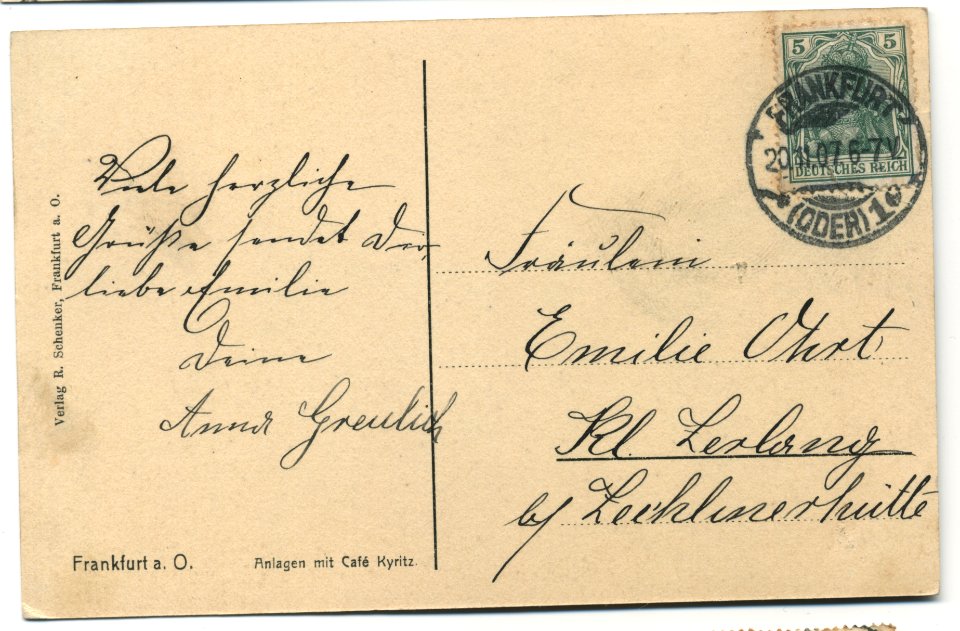 Viele herzliche
Grüße sendet Dir,
liebe Emilie
Deine
Anna Greulich
Verlag R. Schenker, Frankfurt a. O.
Frankfurt a. O. Anlagen mit Café Kyritz.
5 5
DEUTSCHES REICH
FRANKFURT
20.11.07. 6-7V.
* (ODER) 1 e *
Fräulein
Emilie Ohrt
Kl. Zerlang
b/ Zechlinerhütte